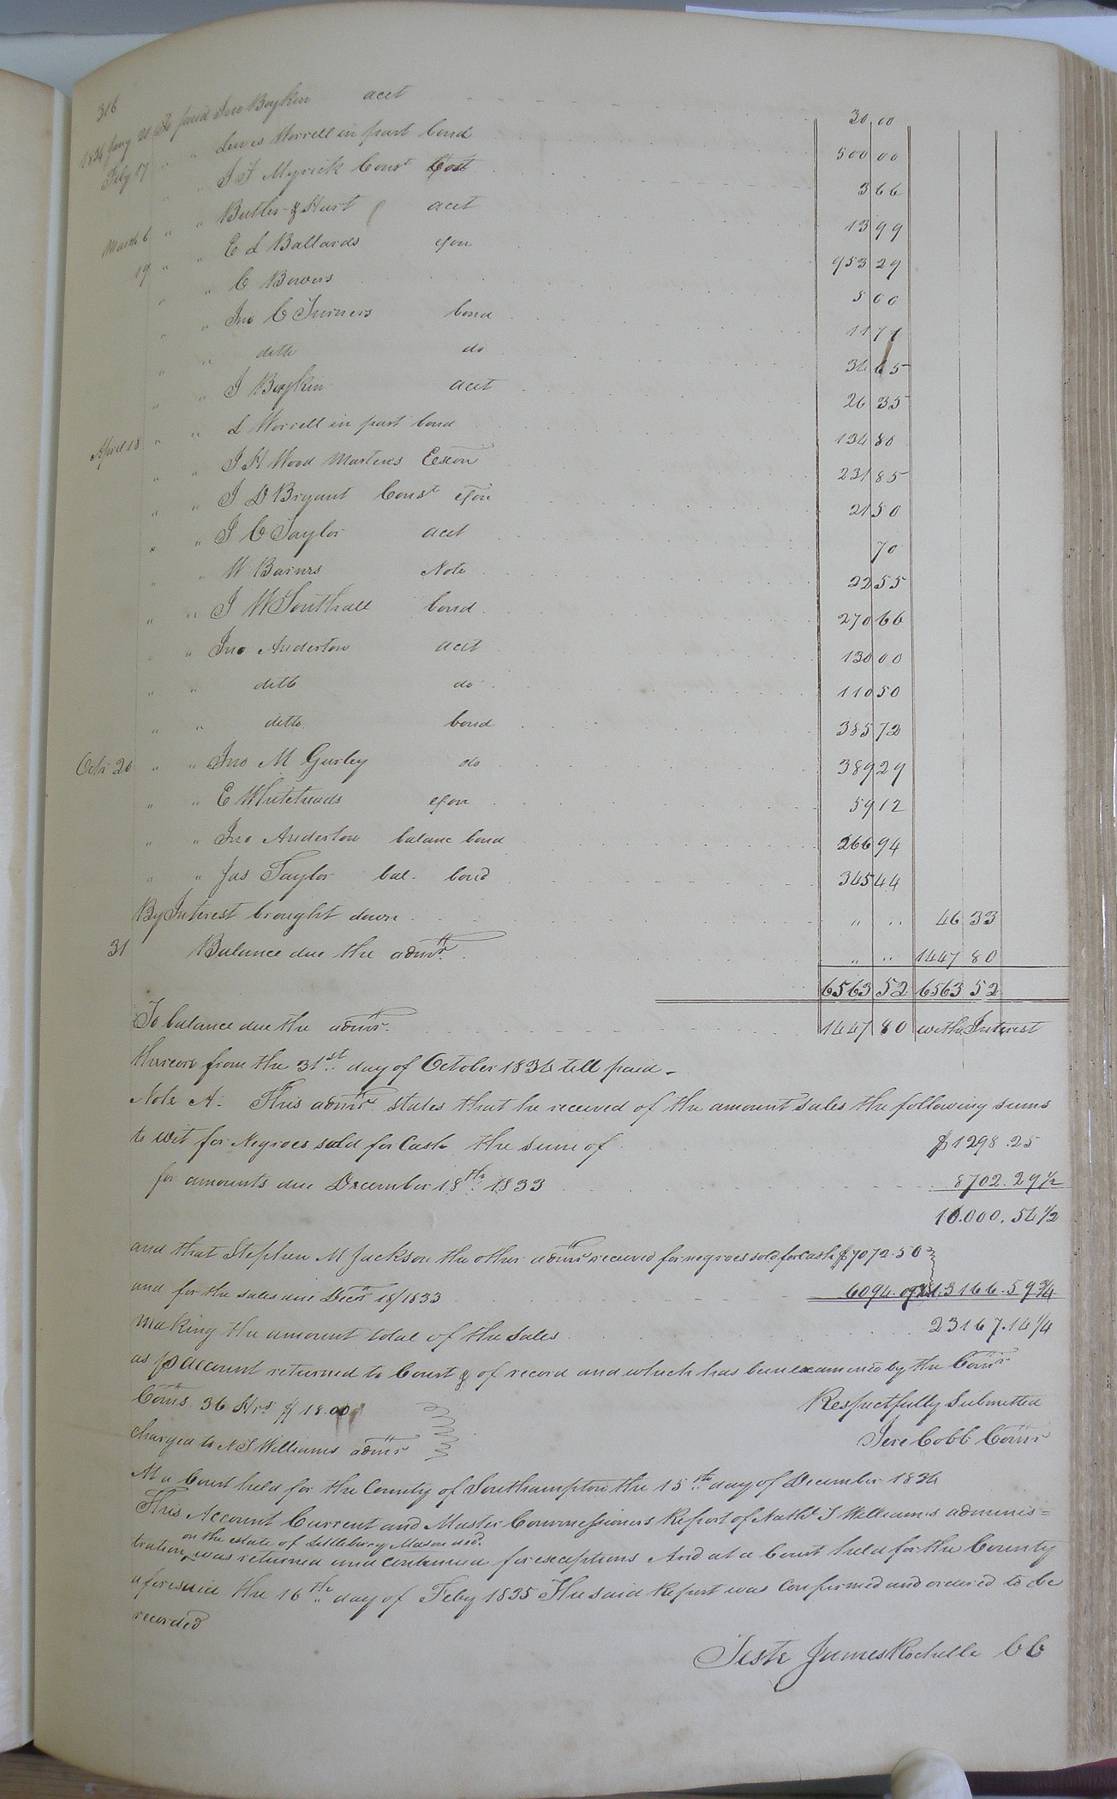 316
1834 Jany 21 To paid Jno Boykin acct 30.00
Feby 17 " " Lewis Worrell in part bond 500 00
" J T Myrick Const Cost 3 66
" Butler & Hart acct 13 99
March 6 " " E L Ballards exon 953 29
19 " " C Bowers 5 00
" " Jno C Turners bond 11 77
" " ditto do 34 65
" " J Boykin acct 26 35
April 18 " " L Worrell in part bond 134 80
" J H Wood Masters Exeon 231 85
" " J D Bryant Const exon 21 50
" " J C Taylor acct 70
" " W Barnes Note 22 55
" " J W Southall bond 270 66
" Jno Anderton acct 130 00
" " ditto do 110 50
" " ditto bond 385 72
Octr 20 " " Jno M Gurley do 389 29
" " E Whiteheads exon 59 12
" " Jno Anderton balanc bond 266 94
" " Jas Taylor bal. bond 345 44
By Interest brought down " " 46 33
31 Balance due the admr " " 1447 80
6563 52 6563 52
To balance due the admr. 1447 80 with Interest
thereon from the 31st day of October 1834 till paid.
Note A. This admr states that he received of the amount sales the following sums
to wit for Negroes sold for Cash the sum of $1298.25
for amounts due December 18th 1833 8702.29½
10.000.54½
and that Stephen M Jackson the other admr received for negroes sold for Cash $7072.50
and for the sales due Decr 18/1833 6094.09¾ 13166.59¾
Making the amount total of the sales 23167.14¼
as p account returned to Court & of record and which has been examined by the Comr
Coms. 36 Hrs $18.00 Respectfully Submitted
Charged to N T Williams admr Jere Cobb Comr
At a Court held for the County of Southampton the 15th day of December 1834
This Account Current and Master Commissioners Report of Nathl T Williams adminis=
on the estate of Littlebury Mason decd.
tration was returned and continued for exceptions And at a Court held for the County
aforesaid the 16th day of Feby 1835 The said Report was Confirmed and ordered to be
recorded
Teste James Rochelle CC